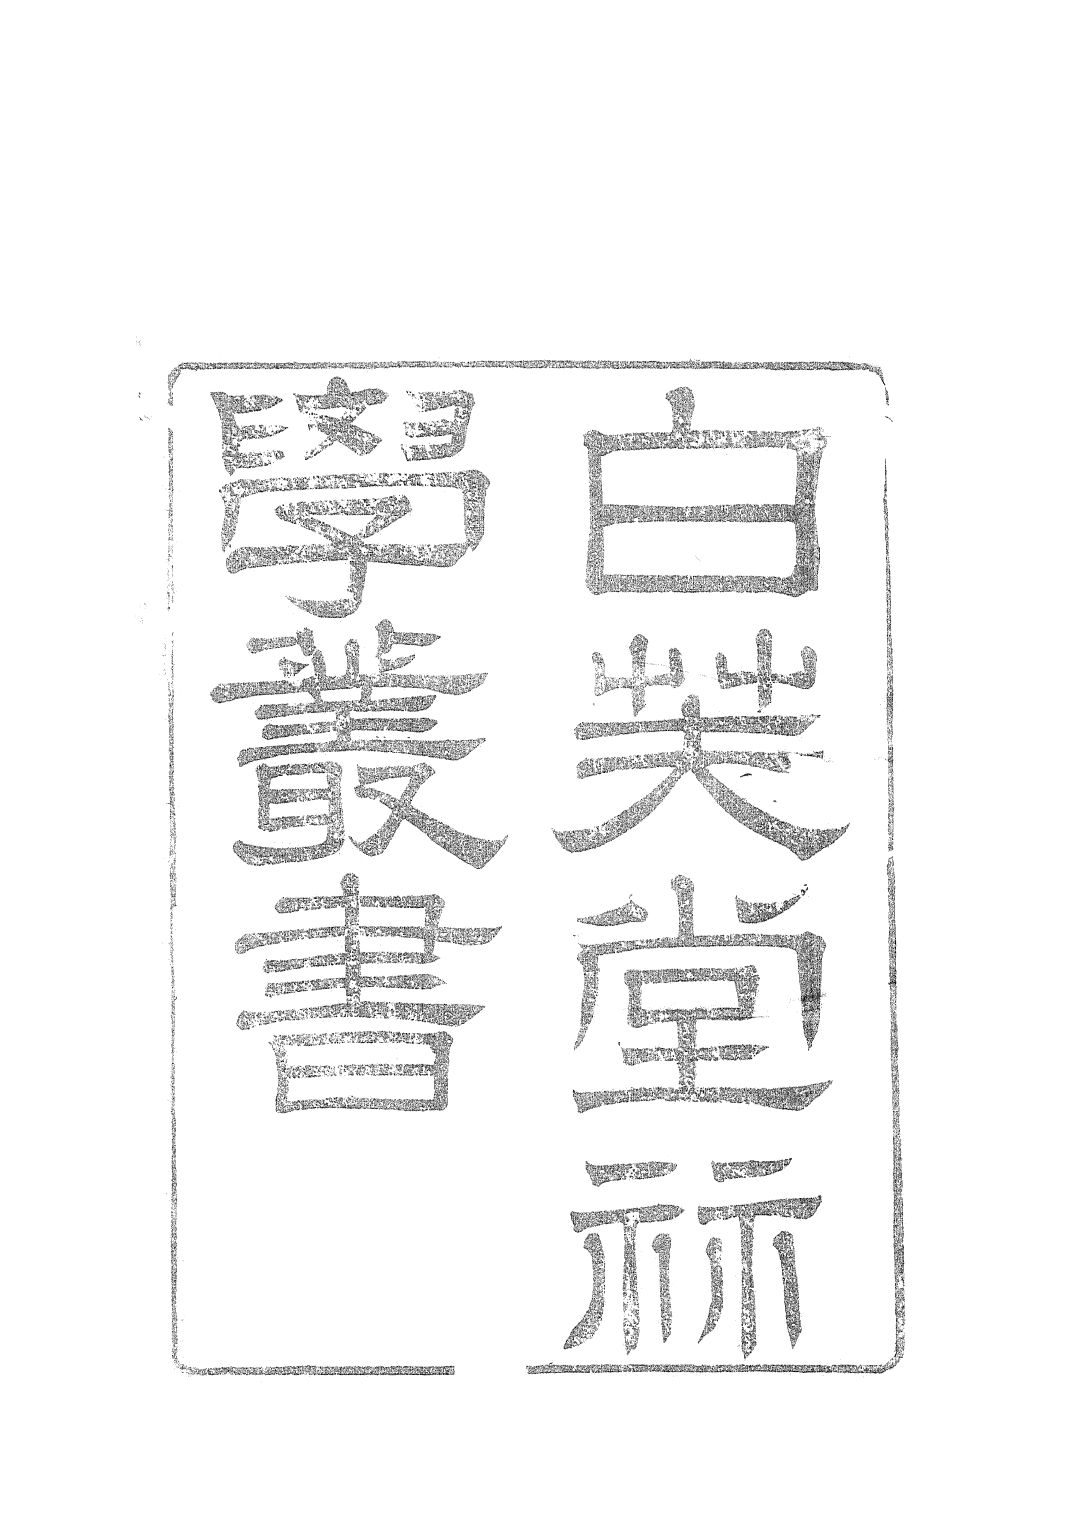 白芙堂祘
學叢書